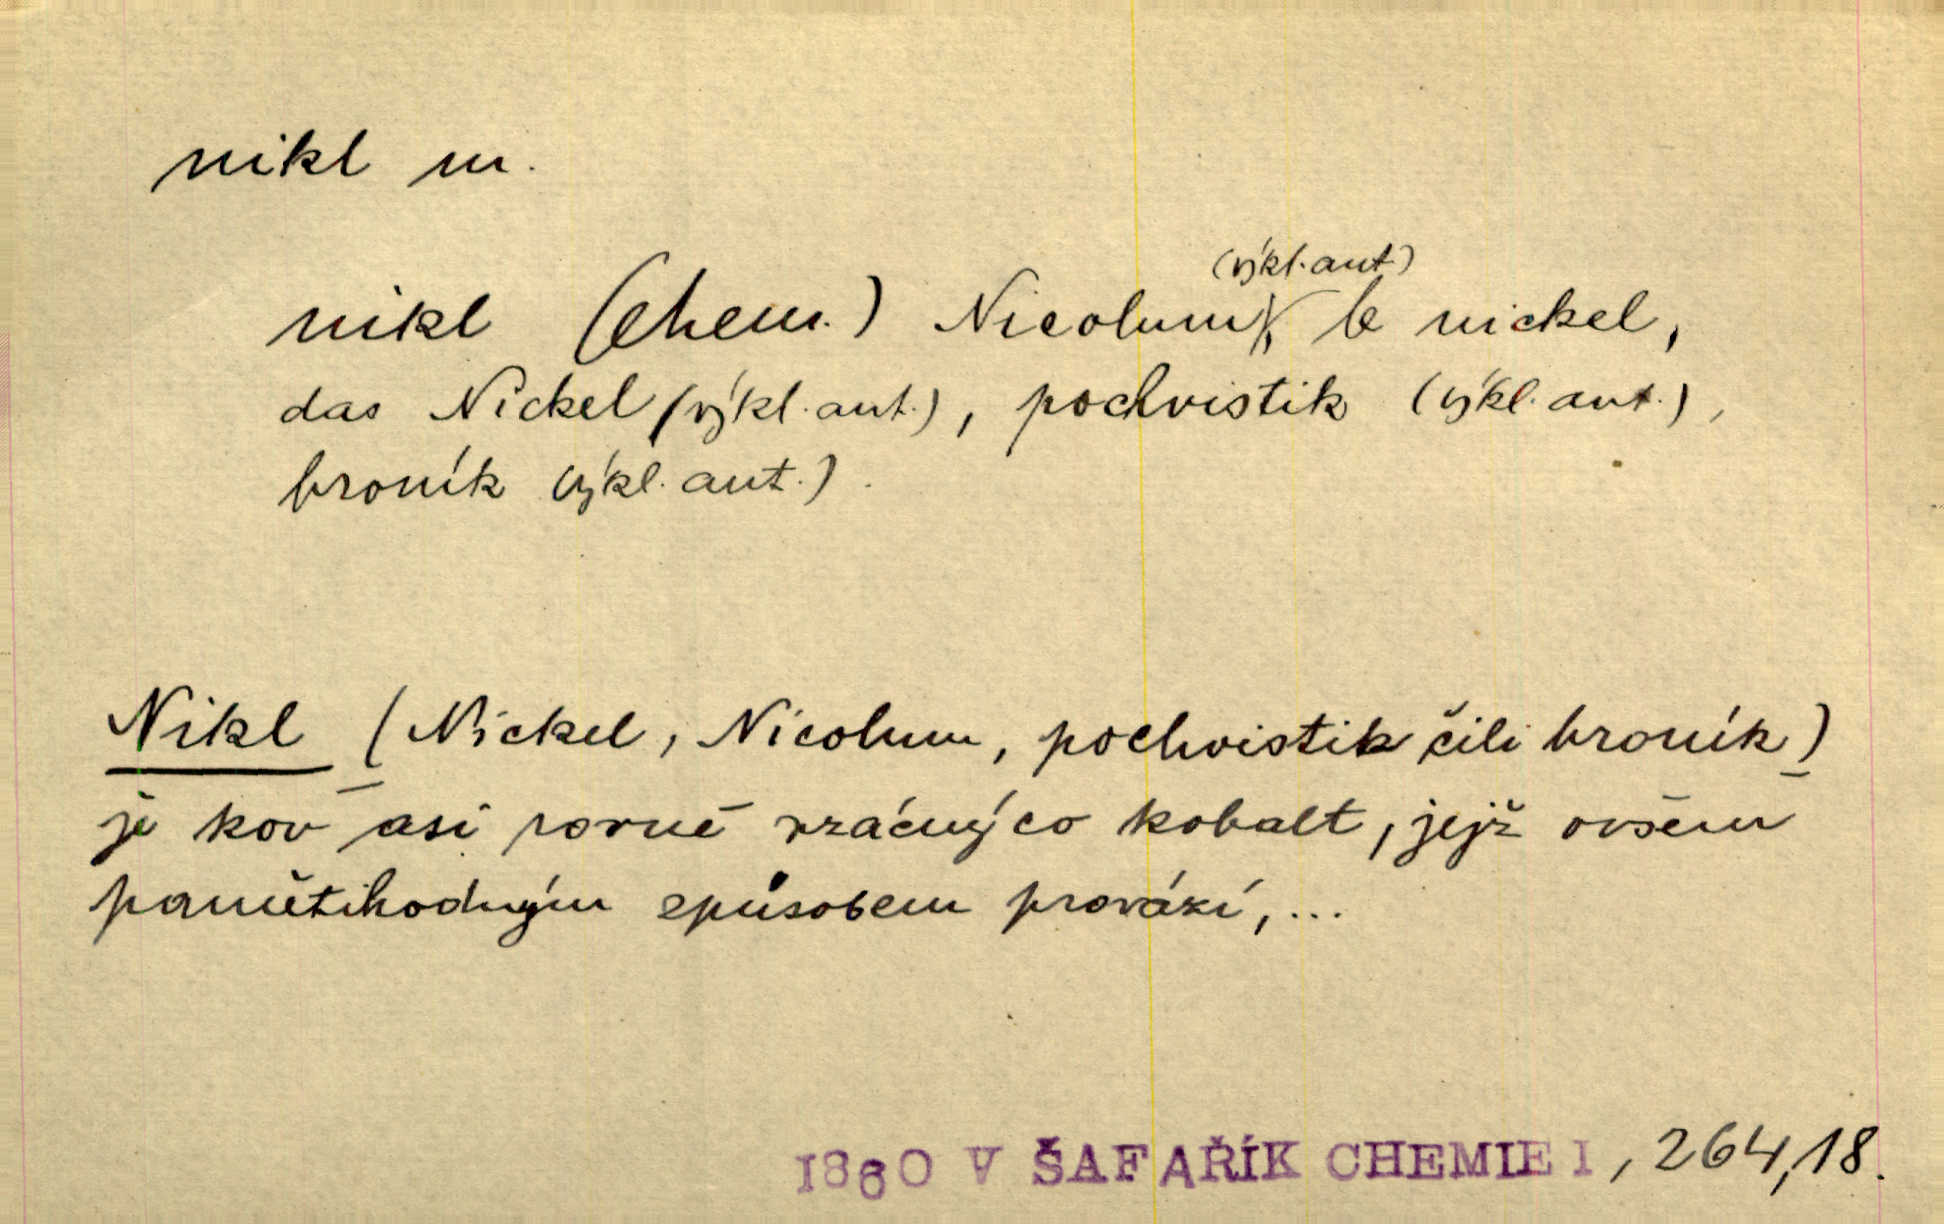 nikl m.
nikl (chem.) Nicolum (výkl. aut.), le nickel,
das Nickel (výkl. aut.), pochvistik (výkl. aut.),
broník (výkl. aut.).
Nikl (Nickel, Nicolum, pochvistik čili broník)
je kov asi rovně vzácný co kobalt, jejž ovšem
pamětihodným spůsobem provází, ...
1860 V ŠAFAŘÍK CHEMIE I, 264,18.